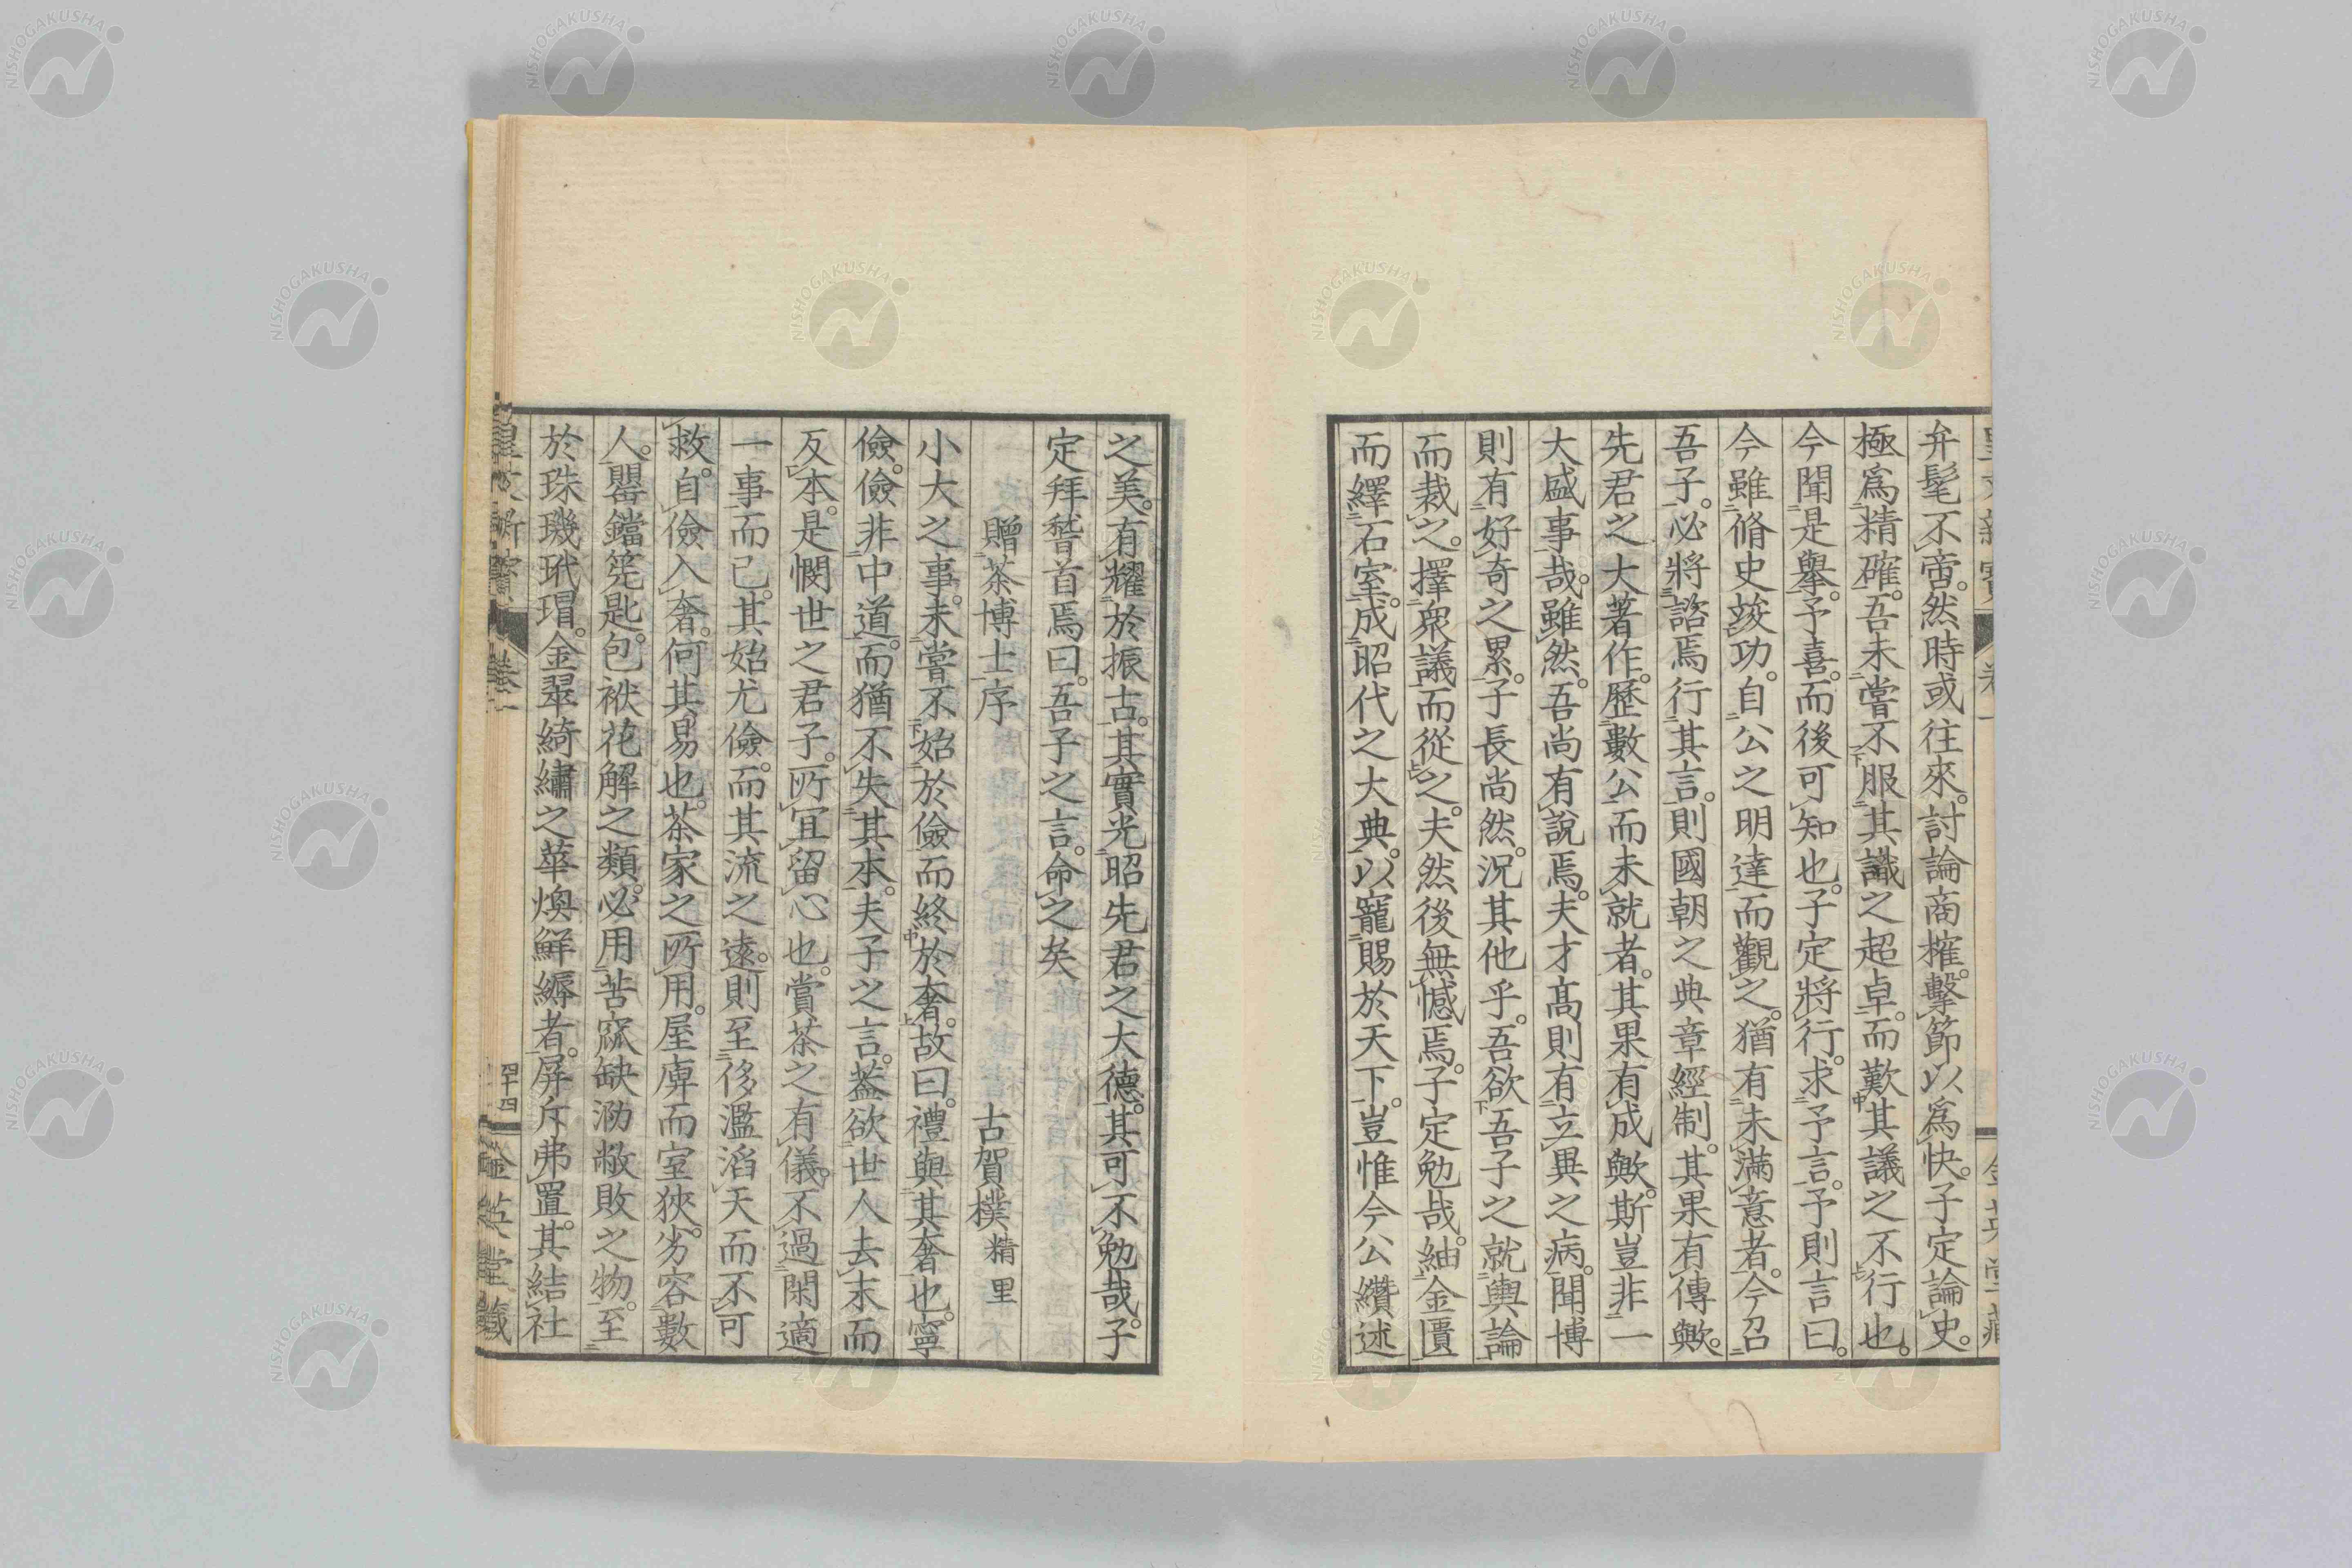 弁髦不啻。然時或往來。討論商搉。擊節以爲快。子定論史。
極爲精確。吾未嘗不服其識之超卓。而歎其議之不行也。
今聞是擧。予喜。而後可知也。子定將行。求予言。予則言曰。
今雖脩史竣功。自公之明達而觀之。猶有未滿意者。今召
吾子。必將諮焉行其言。則國朝之典章經制。其果有傳歟。
先君之大著作。歷數公而未就者。其果有成歟。斯豈非一
大盛事哉。雖然。吾尚有說焉。夫才高則有立異之病。聞博
則有好奇之累。子長尚然。況其他乎。吾欲吾子之就輿論
而裁之。擇衆議而從之。夫然後無憾焉。子定勉哉。紬金匱
而繹石室。成昭代之大典。以寵賜於天下。豈惟今公纘述
之美。有耀於振古。其實光昭先君之大德。其可不勉哉。子
定拜嵆首焉曰。吾子之言。命之矣
贈茶博士序
古賀樸 精里
小大之事。未嘗不始於儉而終於奢。故曰。禮與其奢也。寧
儉。儉非中道。而猶不失其本。夫子之言。蓋欲世人去末而
反本。是憫世之君子。所宜留心也。賞茶之有儀。不過閑適
一事而已。其始尤儉。而其流之遠。則至侈濫滔天而不可
救。自儉入奢。何其易也。茶家之所用。屋庳而室狹。劣容數
人。罌鐺筅匙。包袱花解之類。必用苦窳缺泐敝敗之物。至
於珠璣玳瑁。金翠綺繡之華煥鮮縟者。屏斥弗置。其結社
卷一
四十四
NISHOGAKUSHA